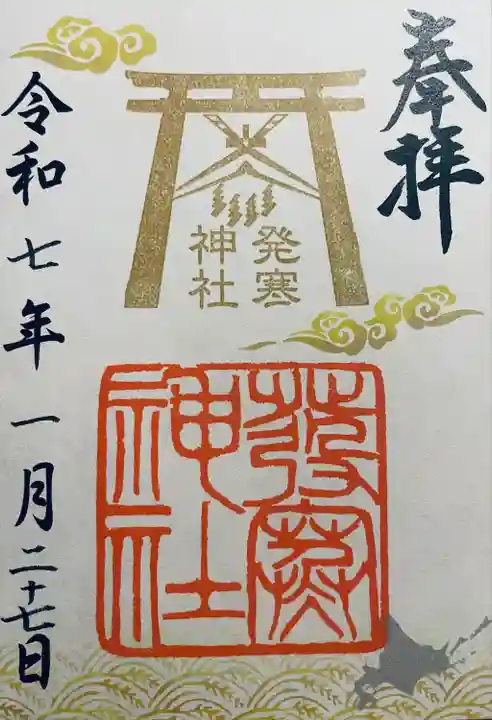 奉拝
発寒
神社
發寒
神社
令和七年一月二十七日